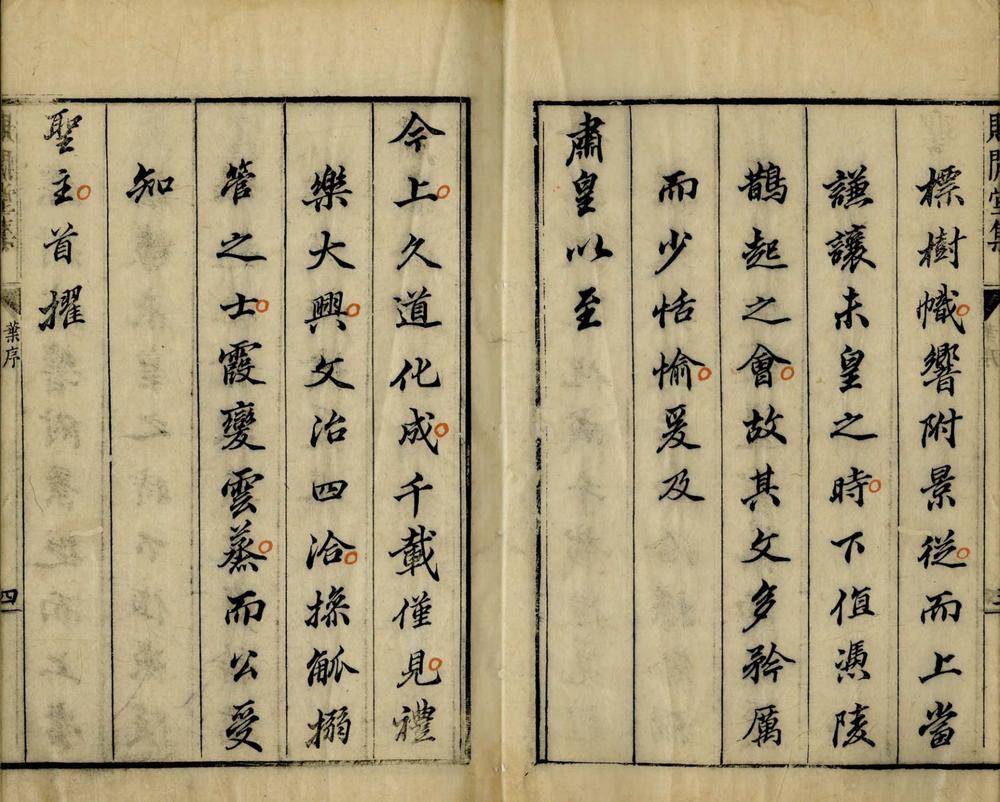 標樹幟響附景從而上當
謙讓未皇之時下値憑陵
鵲起之會故其文多矜厲
而少恬愉爰及
肅皇以至
今上久道化成千載僅見禮
樂大興文治四洽操觚搦
管之士霞變雲蒸而公受
知
聖主首擢
葉序
四